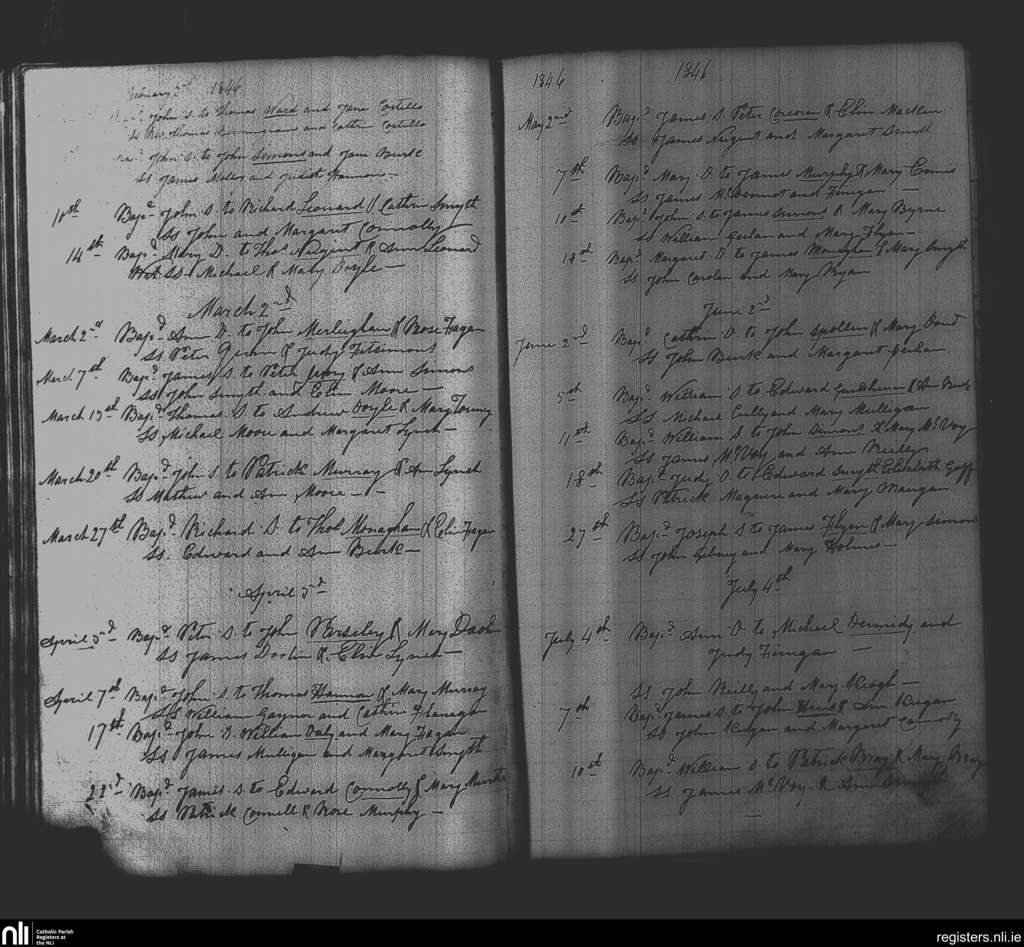 February 3rd 1846
Bapd John S. to Thomas Ward and Jane Costello
Ss Thomas Bermingham and Cathrin Costello
Bapd John S. to John Simons and Jane Burke
Ss James and Judith Hannon —
10th Bapd John S. to Richard Leonard & Cathrin Smyth
Ss John and Margaret Connolly
14th Bapd Mary D. to Thos Nugent & Ann Leonard
Ss Michael & Mary Doyle —
March 2nd
March 2nd Bapd Ann D. to John & Rose Fagan
Ss Peter Quinn & Judy Fitsimons
March 7th Bapd James S to Peter & Ann Simons
Ss John Smyth and Elin Moore —
March 13th Bapd Thomas S. to Andrew Doyle & Mary Tormey
Ss Michael Moore and Margaret Lynch —
March 20th Bapd John S. to Patrick Murray & Ann Lynch
Ss Mathew and Ann Moore — -
March 27th Bapd Richard S to Thos Monaghan & Elin Fagan
Ss. Edward and Ann Burk —
April 5d
April 5d Bapd Peter S. to John & Mary
Ss James & Elin Lynch —
April 7th Bapd John S. to Thomas Hannon & Mary Murray
Ss William Gaynor and Cathrin Flanagan
17th Bapd John S. William Daly and Mary Fagan
Ss James Mulligan and Margaret Smyth
22d Bapd James S. to Edward Connolly & Mary
Ss Patrick Connell & Rose Murphy —
1846 1846
May 2nd Bapd James S. Peter Corcoran & Elin Macken
Ss James Nugent and Margaret Smyth
7th Bapd Mary D. to James Murphy & Mary Ennis
Ss James McDermot and Finegan —
10th Bapd John S. to James Simons & Mary Byrne
Ss William and Mary Flynn —
18th Bapd Margaret D. to James Monaghan & Mary Smyth
Ss John Carolan and Mary Ryan
June 2nd
June 2nd Bapd Cathrin D. to John Spollen & Mary
Ss John Burk and Margaret
5th Bapd William S to Edward & Ann Burk
Ss Michael Cully and Mary Mulligan
11th Bapd William S to John Simons & Mary McVoy
Ss James McVoy and Ann Reilly
18th Bapd Judy D to Edward Smyth Elisabeth Goff
Ss Patrick Maguire and Mary Mangan
27th Bapd Joseph S to James Flynn & Mary Simons
Ss John Gibney and Mary Holms —
July 4th
July 4th Bapd Ann D to Michael Dermedy and
Judy Finegan —
Ss John Reilly and Mary Keogh —
7th Bapd James S. to John & Ann Keegan
Ss John Keegan and Margaret
10th Bapd William S to Patrick Bray & Mary Bray
Ss James McVoy & Ann Smyth
nli Catholic Parish
Registers at
the NLI
registers.nli.ie